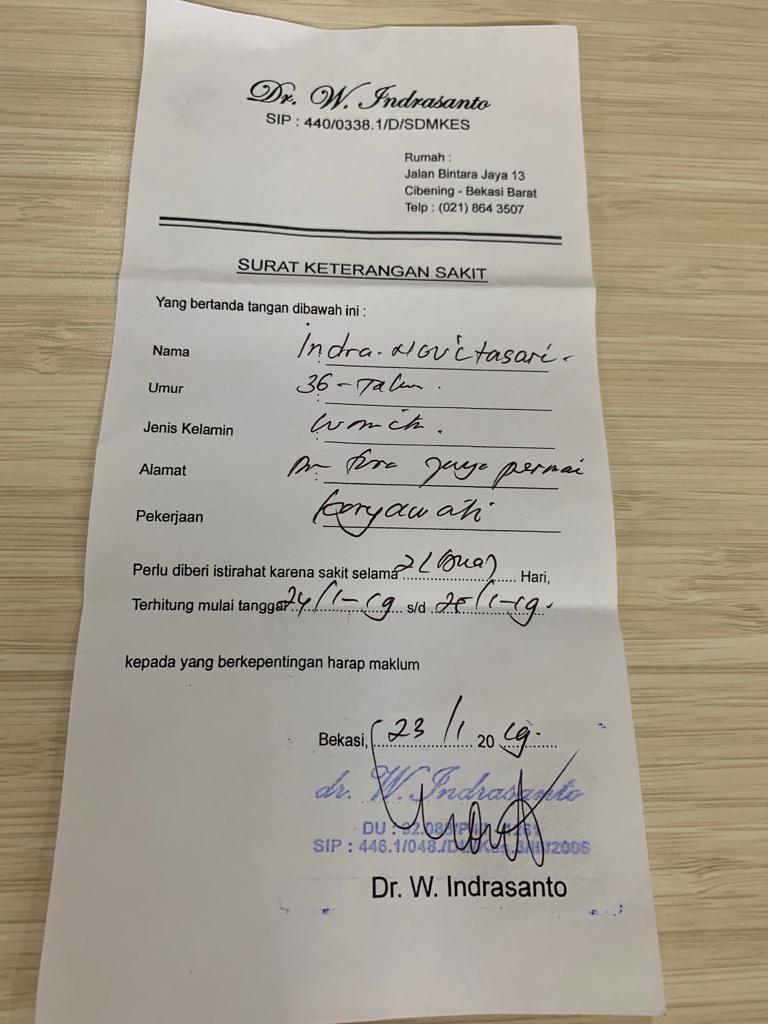 Dr. W. Indrasanto
SIP : 440/0338.1/D/SDMKES
Rumah :
Jalan Bintara Jaya 13
Cibening - Bekasi Barat
Telp : (021) 864 3507
SURAT KETERANGAN SAKIT
Yang bertanda tangan dibawah ini :
Nama : Indra Novitasari
Umur : 36 - Tahun
Jenis Kelamin : Wanita
Alamat : jaya permai
Pekerjaan : Karyawati
Perlu diberi istirahat karena sakit selama 2 (Dua) Hari,
Terhitung mulai tanggal 24/1-19 s/d 25/1-19
kepada yang berkepentingan harap maklum
Bekasi, 23/1 2019
dr. W. Indrasanto
DU :
SIP : 446.1/048./2006
Dr. W. Indrasanto